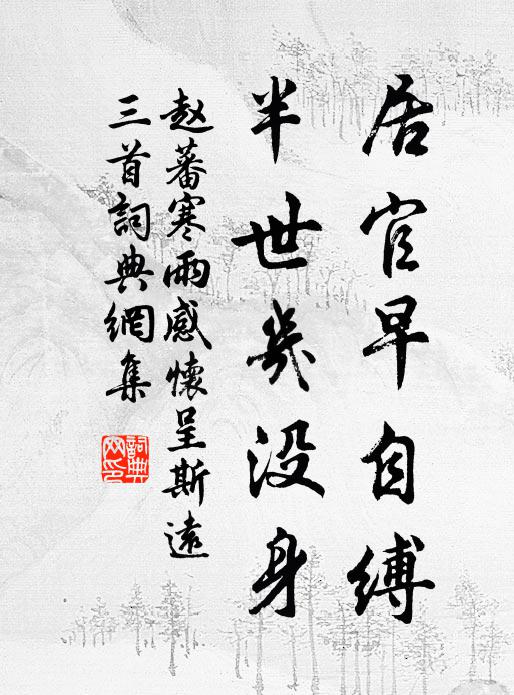 居官早自缚
半世几没身
赵蕃寒雨感怀呈斯远
三首词典網集
詞典网印